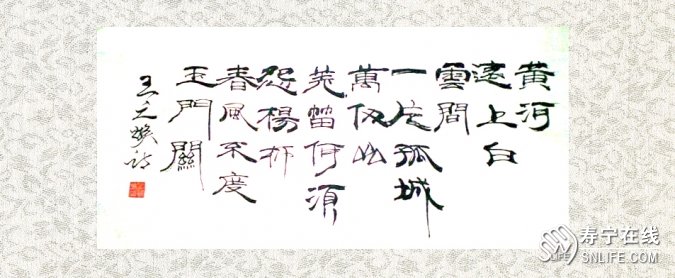 黄河
遠上白
雲間
一片孤城
萬仞山
羌笛何須
怨楊柳
春風不度
玉門關
王之涣诗
寿宁在线
SNLIFE.COM
LIFE